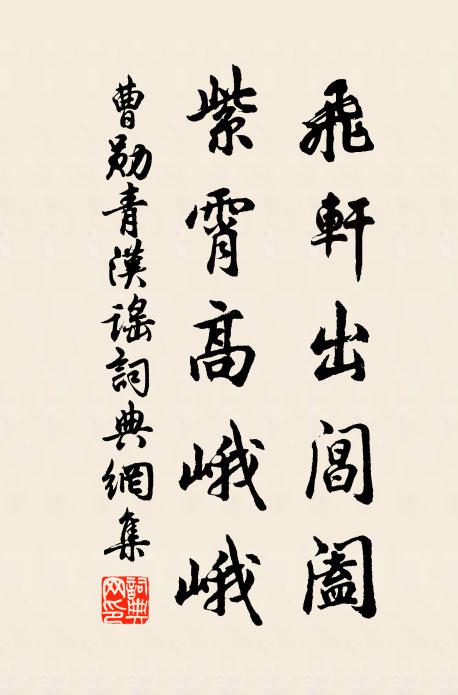 飛軒出閶闔
紫霄高峨峨
曹勛青漢謠詞典網集
詞典网印